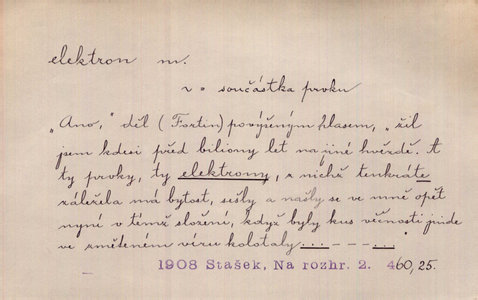 elektron m.
~ = součástka prvku
„Ano,“ děl (Fortin) povýšeným hlasem, „žil
jsem kdesi před biliony let na jiné hvězdě. A
ty prvky, ty elektrony, z nichž tenkráte
záležela má bytost, sešly a našly se ve mně opět
nyní v témž složení, když byly kus věčnosti jinde
ve zmíteném víru kolotaly ... – – – ... “
1908 Stašek, Na rozhr. 2. 460, 25.